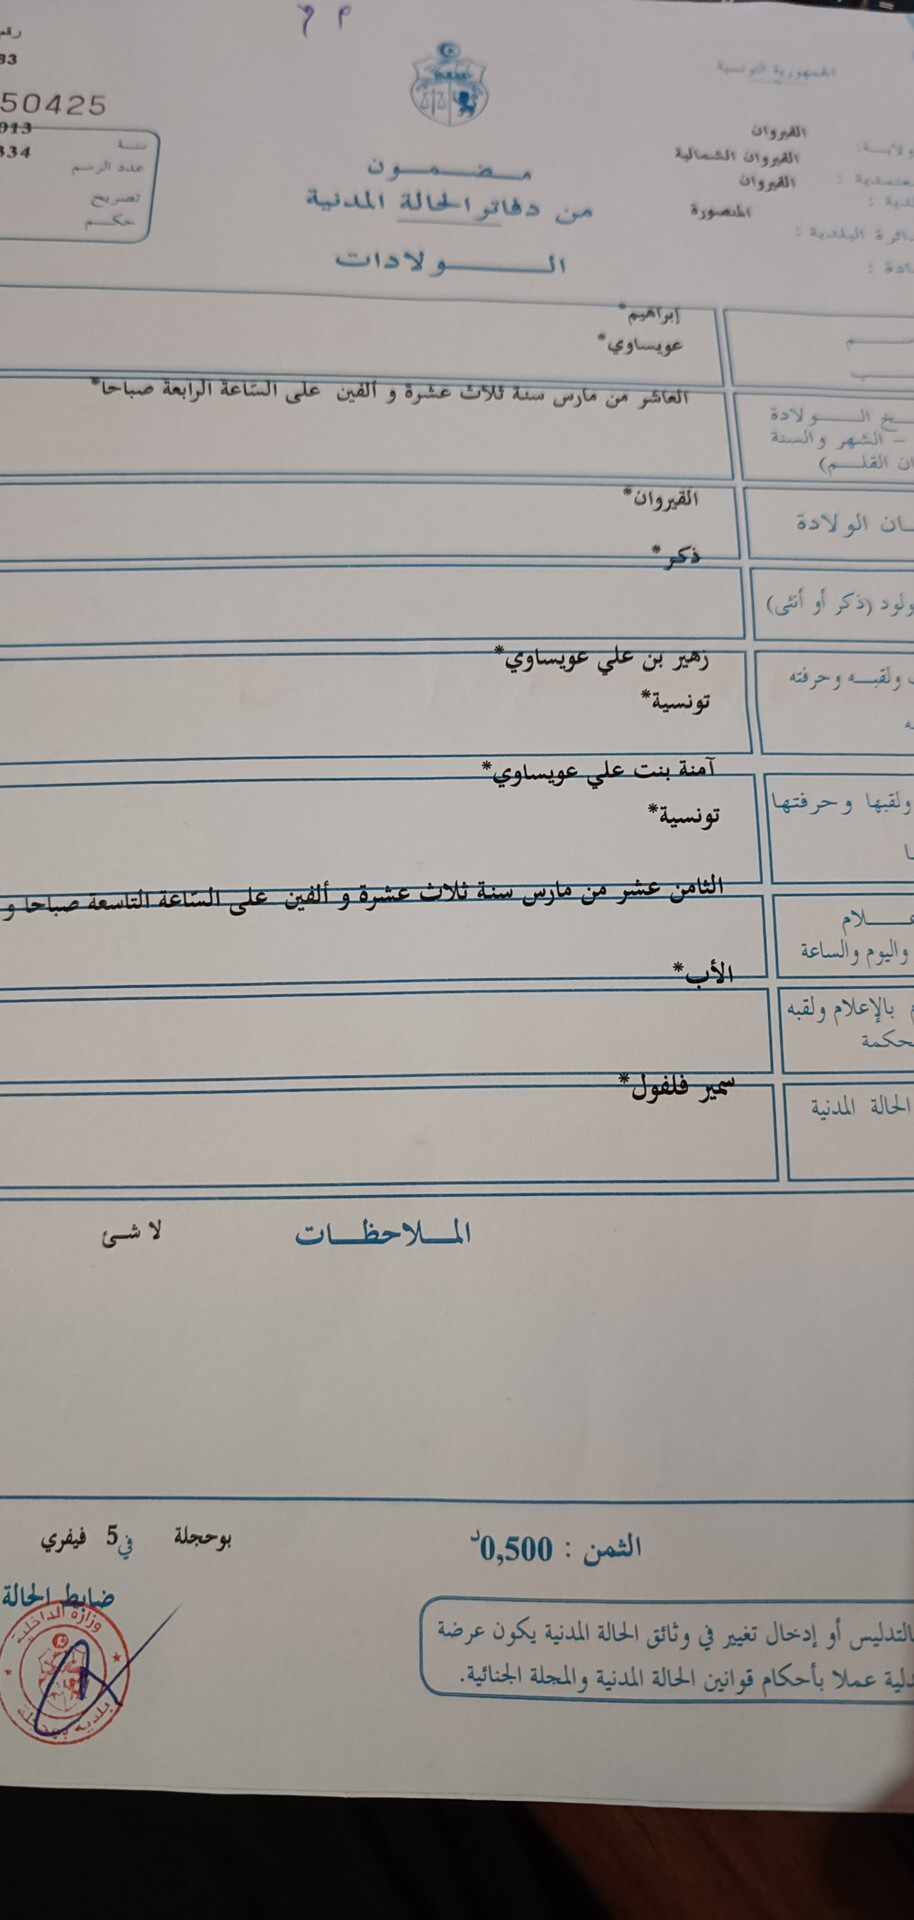 الجمهورية التونسية
القيروان
القيروان الشمالية
القيروان
المنصورة
دائرة البلدية :
مضمون
من دفاتر الحالة المدنية
الولادات
33
50425
013
334
سنة
عدد الرسم
تصريح
حكم
إبراهيم*
عويساوي*
الولادة
- الشهر والسنة
القلم)
العاشر من مارس سنة ثلاث عشرة و ألفين على الساعة الرابعة صباحا*
الولادة
القيروان*
(ذكر أو أنثى)
ذكر*
ولقبه وحرفته
زهير بن علي عويساوي*
تونسية*
ولقبها وحرفتها
آمنة بنت علي عويساوي*
تونسية*
واليوم والساعة
الثامن عشر من مارس سنة ثلاث عشرة و ألفين على الساعة التاسعة صباحا و
بالإعلام ولقبه
الأب*
الحالة المدنية
سمير فلفول*
الملاحظات
لا شئ
الثمن : 0,500د
بوحجلة في 5 فيفري
ضابط الحالة
وزارة الداخلية
بلدية بوحجلة
بالتدليس أو إدخال تغيير في وثائق الحالة المدنية يكون عرضة
عملا بأحكام قوانين الحالة المدنية والمجلة الجنائية.